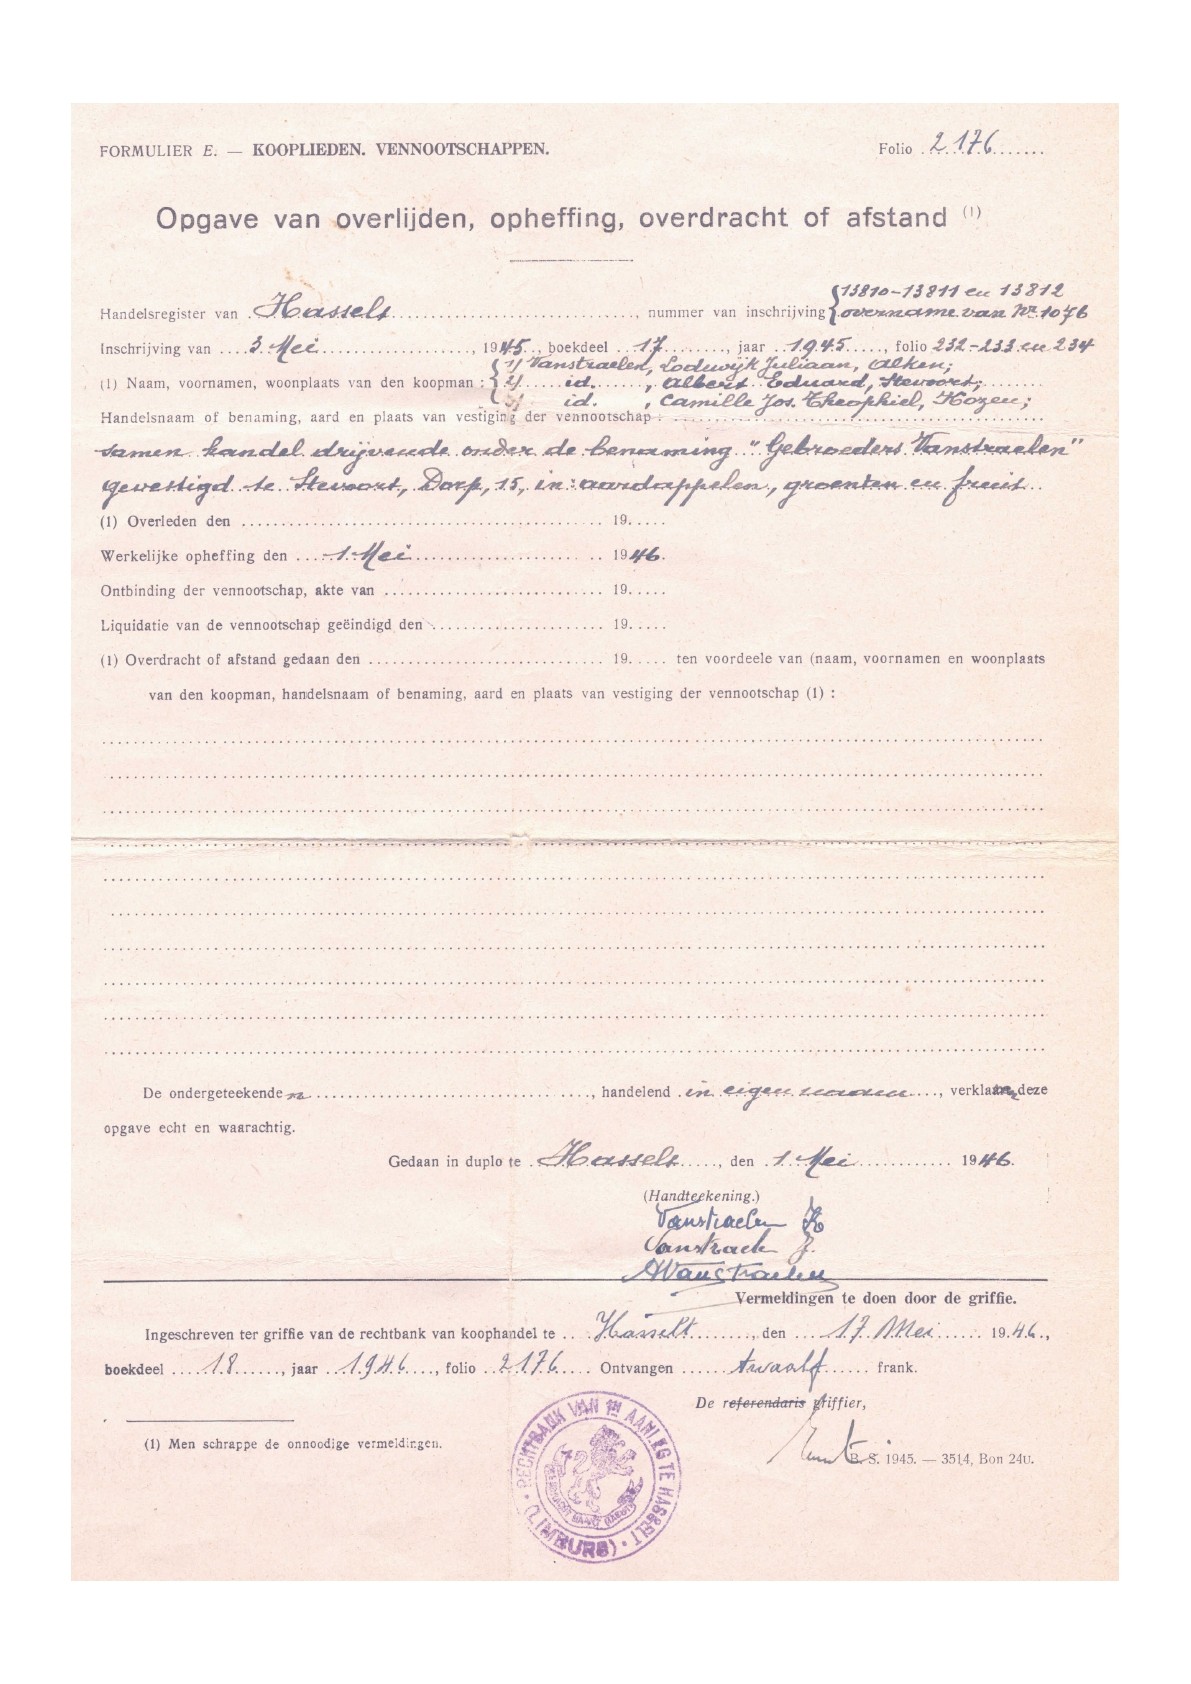 FORMULIER E. — KOOPLIEDEN. VENNOOTSCHAPPEN. Folio 2176
Opgave van overlijden, opheffing, overdracht of afstand (1)
13810-13811 en 13812
Handelsregister van Hasselt, nummer van inschrijving overname van Nr. 1076
Inschrijving van 3 Mei, 1945, boekdeel 17, jaar 1945, folio 232-233 en 234
1) Vanstraelen, Lodewijk Juliaan, Alken;
(1) Naam, voornamen, woonplaats van den koopman : 2) id. , Albert Eduard, Stevoort;
3) id. , Camille Jos. Theophiel, Kozen;
Handelsnaam of benaming, aard en plaats van vestiging der vennootschap :
samen handel drijvende onder de benaming "Gebroeders Vanstraelen"
gevestigd te Stevoort, Dorp, 15, in: aardappelen, groenten en fruit
(1) Overleden den 19
Werkelijke opheffing den 1 Mei 1946.
Ontbinding der vennootschap, akte van 19
Liquidatie van de vennootschap geëindigd den 19
(1) Overdracht of afstand gedaan den 19 ten voordeele van (naam, voornamen en woonplaats
van den koopman, handelsnaam of benaming, aard en plaats van vestiging der vennootschap (1) :
De ondergeteekenden, handelend in eigen naam, verklaren deze
opgave echt en waarachtig.
Gedaan in duplo te Hasselt, den 1 Mei 1946.
(Handteekening.)
Vanstraelen
Vanstraelen J.
AVanstraelen
Vermeldingen te doen door de griffie.
Ingeschreven ter griffie van de rechtbank van koophandel te Hasselt, den 17 Mei 1946,
boekdeel 18, jaar 1946, folio 2176 Ontvangen twaalf frank.
De referendaris griffier,
(1) Men schrappe de onnoodige vermeldingen.
B. S. 1945. — 3514, Bon 24u.
RECHTBANK VAN 1n AANLEG TE HASSELT
(LIMBURG)
EENDRACHT MAAKT MACHT